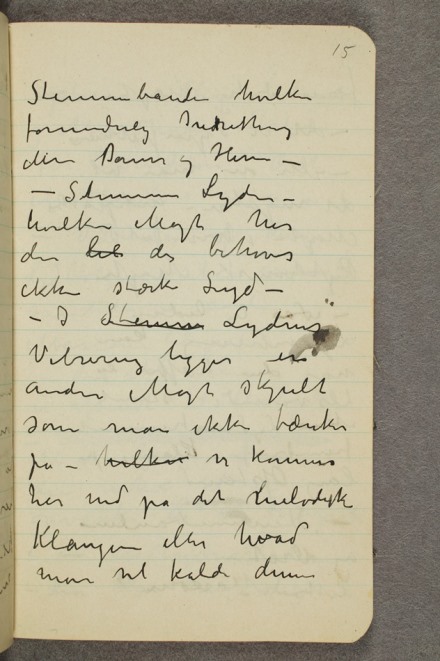 15
Stemmebaandet hvilken
forunderlig Indretning
den Danner og Hæver –
– Stemmens Lyder –
hvilken Magt har
den lil der behøves
ikke stærk Lyd –
– I Stemme Lydens
Vibrering ligger en
anden Magt skjult
som man ikke tænker
paa – hvilken vi kommer
her ind paa det melodiske
Klangen eller hvad
man vil kalde denne